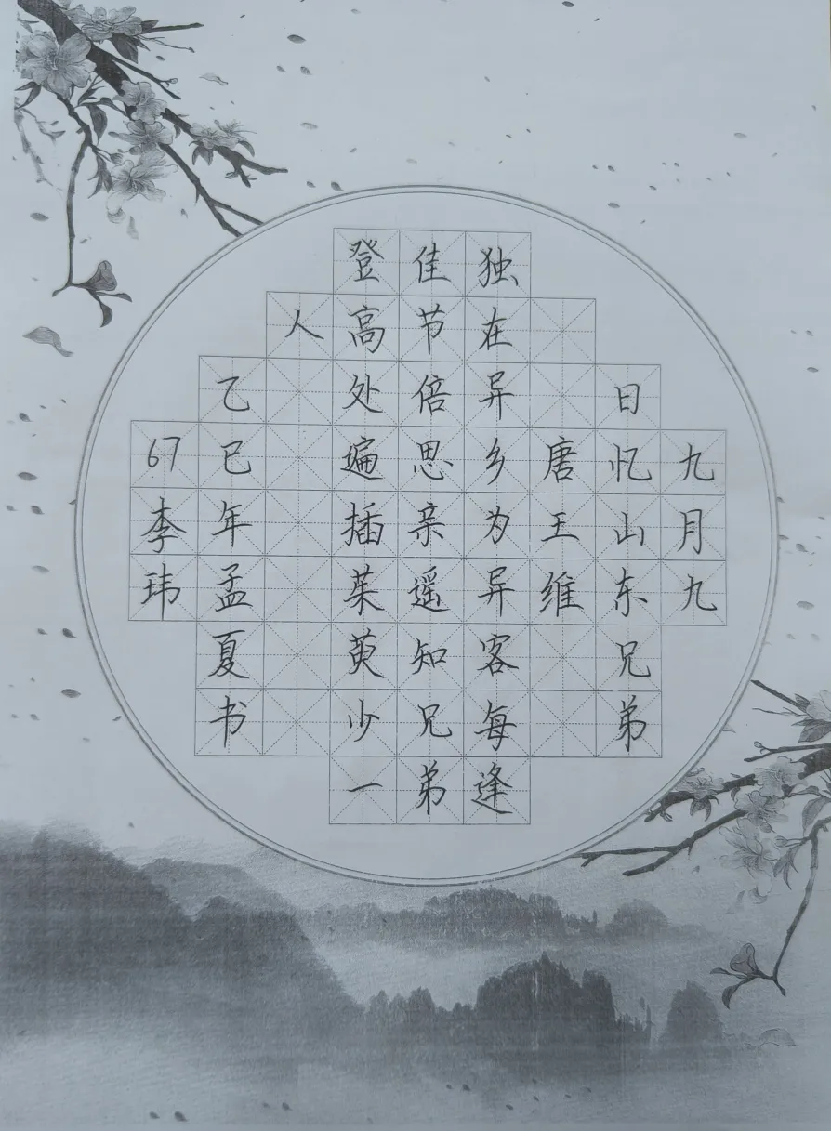 九月九
日忆山东兄弟
唐王维
独在异乡为异客每逢
佳节倍思亲遥知兄弟
登高处遍插茱萸少一
人
乙巳年孟夏书
67李玮